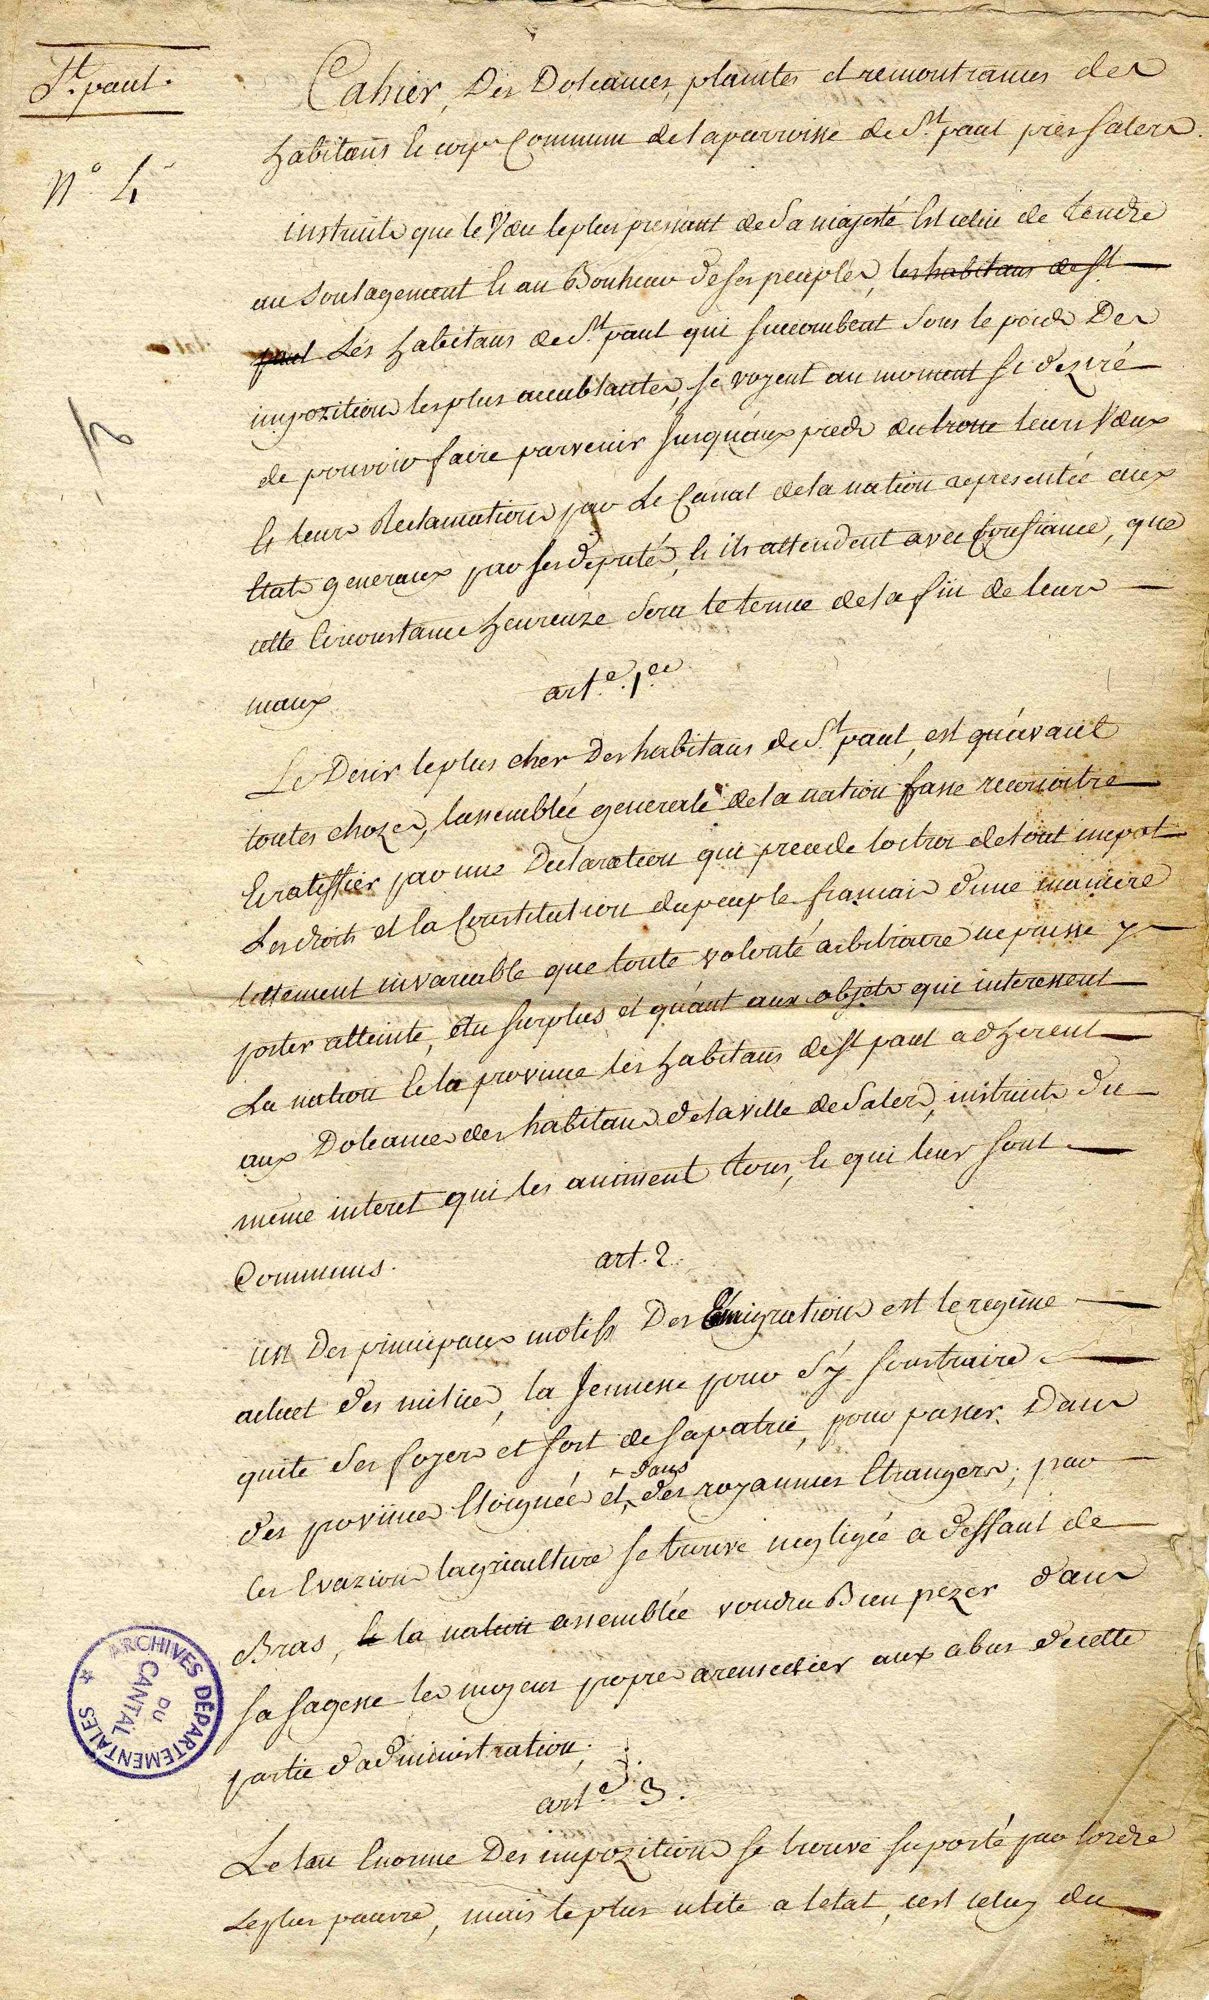 St. paul.
N° 4
Cahier, Des Doleances, plaintes et remontrances des
habitans & corps Commun de la parroisse de St. paul près Salers.
instruits que le Vœu le plus pressant de Sa majesté Est celui de tendre
au Soulagement & au Bonheur de ses peuples, les habitans de St
paul Les habitans de St. paul qui succombent Sous le poids Des
impozitions les plus accablantes, se voyent au moment si deziré
de pouvoir faire parvenir Jusquáux pieds du trone leurs Vœux
& leurs Reclamations par Le Canal de la nation representée aux
Etats generaux par ses députés, & ils attendent avec Confiance, que
cette Circonstance heureuze Sera le terme de la fin de leurs
maux.
arte. 1er.
Le Desir le plus cher Des habitans de St. paul, est quávant
toutes chozes, lassemblée generale de la nation fasse reconnoitre
& ratiffier par une Declaration qui precede loctroi de tout impot
Les droits et la Constitution du peuple francais d'une maniere
tellement invariable que toute volonté arbitraire ne puisse y
porter atteinte, du surplus et quánt aux objets qui interessent
La nation & la province les habitans de St paul adherent
aux Doleances des habitans de la ville de Salers, instruits du
même interet qui les animent tous, & qui leur sont
Communs.
art. 2.
un Des principaux motifs Des Emigrations est le regime
actuel des milices, la Jeunesse pour s'y soustraire
quite ses foyers et sort de sa patrie, pour passer Dans
des provinces Eloignées et dans des royaumes Etrangers; par
ces Evazions lagriculture se trouve negligée a deffaut de
Bras, & la nation assemblée voudra Bien pezer dans
sa sagesse les moyens propres a remedier aux abus de cette
partie d'administration.
arte. 3.
Le taux Enorme Des impozitions se trouve suporté par lordre
Le plus pauvre, mais le plus utile a letat, cest celuy du
ARCHIVES DÉPARTEMENTALES
DU
CANTAL